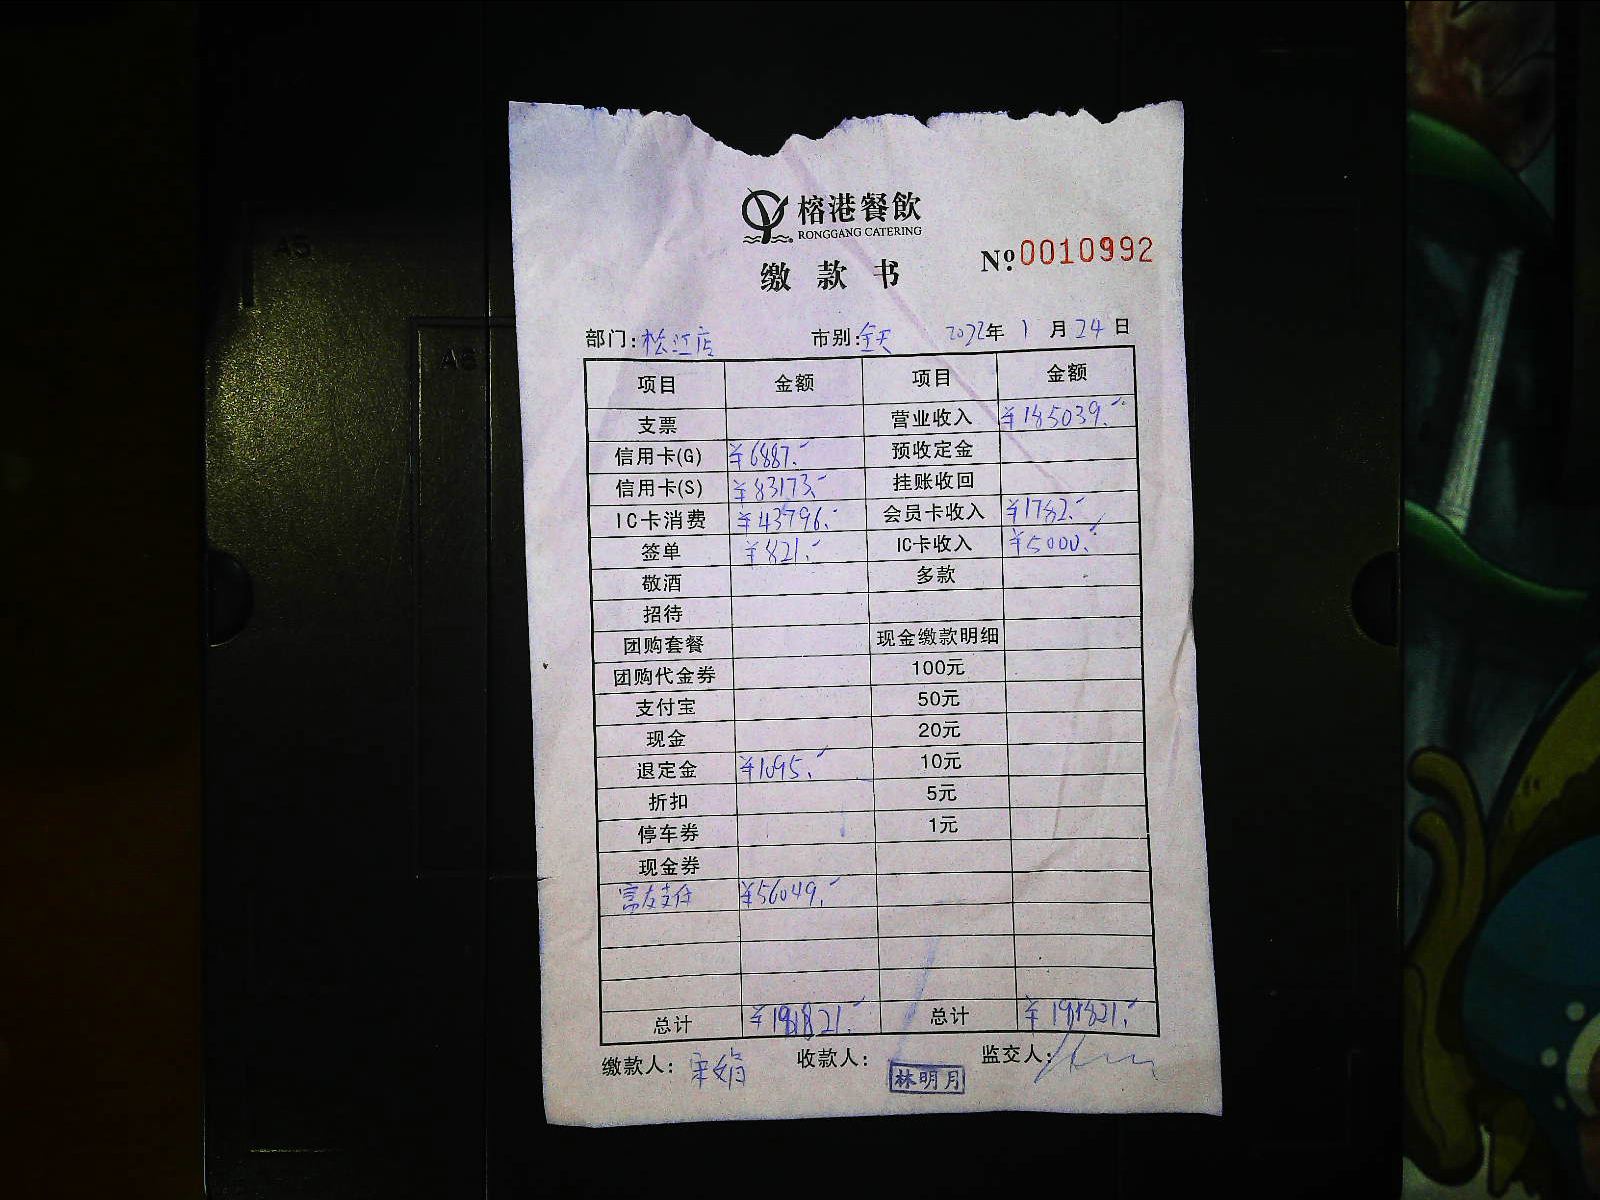 榕港餐飲
RONGGANG CATERING
缴款书
№ 0010992
部门: 松江店 市别: 全天 2022年 1月24日
项目 金额 项目 金额
支票 营业收入 ¥185039.-
信用卡(G) ¥6887.- 预收定金
信用卡(S) ¥83173.- 挂账收回
IC卡消费 ¥43796.- 会员卡收入 ¥1782.-
签单 ¥821.- IC卡收入 ¥5000.-
敬酒 多款
招待
团购套餐 现金缴款明细
团购代金券 100元
支付宝 50元
现金 20元
退定金 ¥1095.- 10元
折扣 5元
停车券 1元
现金券
富友支付 ¥56049.-
总计 ¥191821.- 总计 ¥191821.-
缴款人: 收款人: 林明月 监交人:
A5
A6